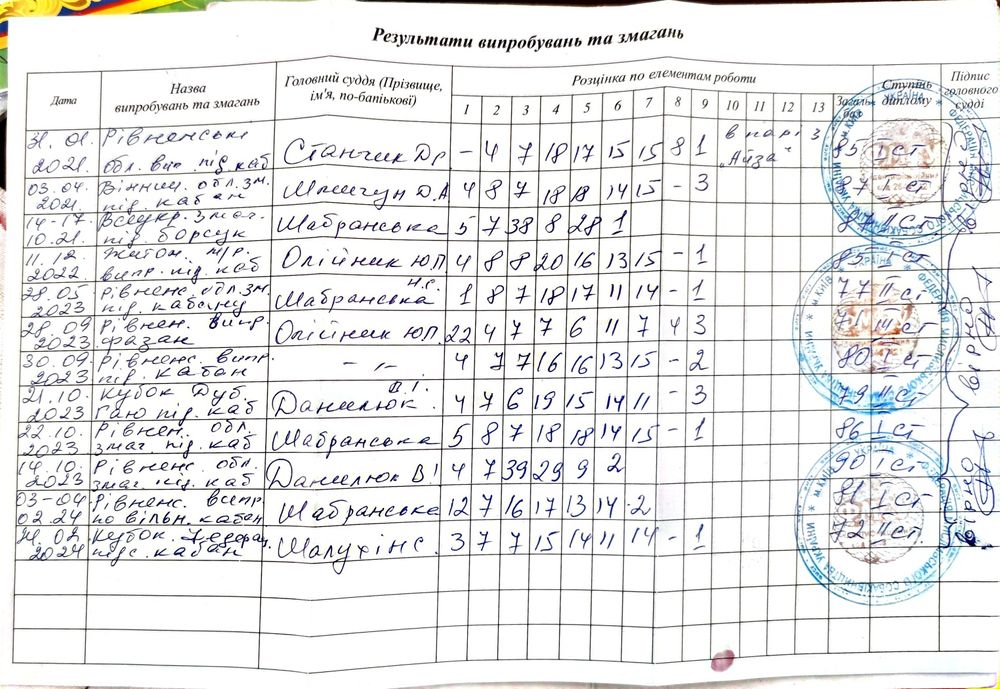 Результати випробувань та змагань
Дата Назва випробувань та змагань Головний суддя (Прізвище, ім'я, по-батькові) Розцінка по елементам роботи Загальн. бал Ступінь диплому Підпис головного судді
1 2 3 4 5 6 7 8 9 10 11 12 13
31.01. Рівненські в парі з
2021. обл. вип. під. каб Станчик Др - 4 7 18 17 15 15 8 1 „Айза“ 85 I ст
03.04. Вінниц. обл. зм.
2021. під. кабан Д.А 4 8 7 18 18 14 15 - 3 87 I ст
14-17. Всеукр. змаг.
10.21. під. борсук Шабранська 5 7 38 8 28 1 87 II ст
11.12. Житом. м/р.
2022 випр. під. каб Олійник Ю.П 4 8 8 20 16 13 15 - 1 85 I ст
28.05 Рівненс. обл. зм. Н.Є.
2023 під. кабану Шабранська 1 8 7 18 17 11 14 - 1 77 II ст
28.09 Рівнен. випр.
2023 фазан Олійник Ю.П. 22 4 7 7 6 11 7 4 3 71 III ст
30.09. Рівненс. випр.
2023 під. кабан - „ - 4 7 7 16 16 13 15 - 2 80 I ст
21.10. Кубок Дуб. В.І.
2023 Гаю під. каб Данилюк 4 7 6 19 15 14 11 - 3 79 II ст
22.10. Рівнен. обл.
2023 змаг. під. каб Шабранська 5 8 7 18 18 14 15 - 1 86 I ст
14.10. Рівненс. обл.
2023 змаг. під. каб Данилюк В.І 4 7 39 29 9 2 90 I ст
03-04 Рівненс. випр.
02.24 по вільн. кабан Шабранська 12 7 16 17 13 14 2 81 I ст
24.02. Кубок Федерац.
2024 підс. кабан Шалухін С. 3 7 7 15 14 11 14 - 1 72 II ст.
УКРАЇНА
м.КИЇВ
УКРАЇНА
м.КИЇВ
УКРАЇНА
м.КИЇВ